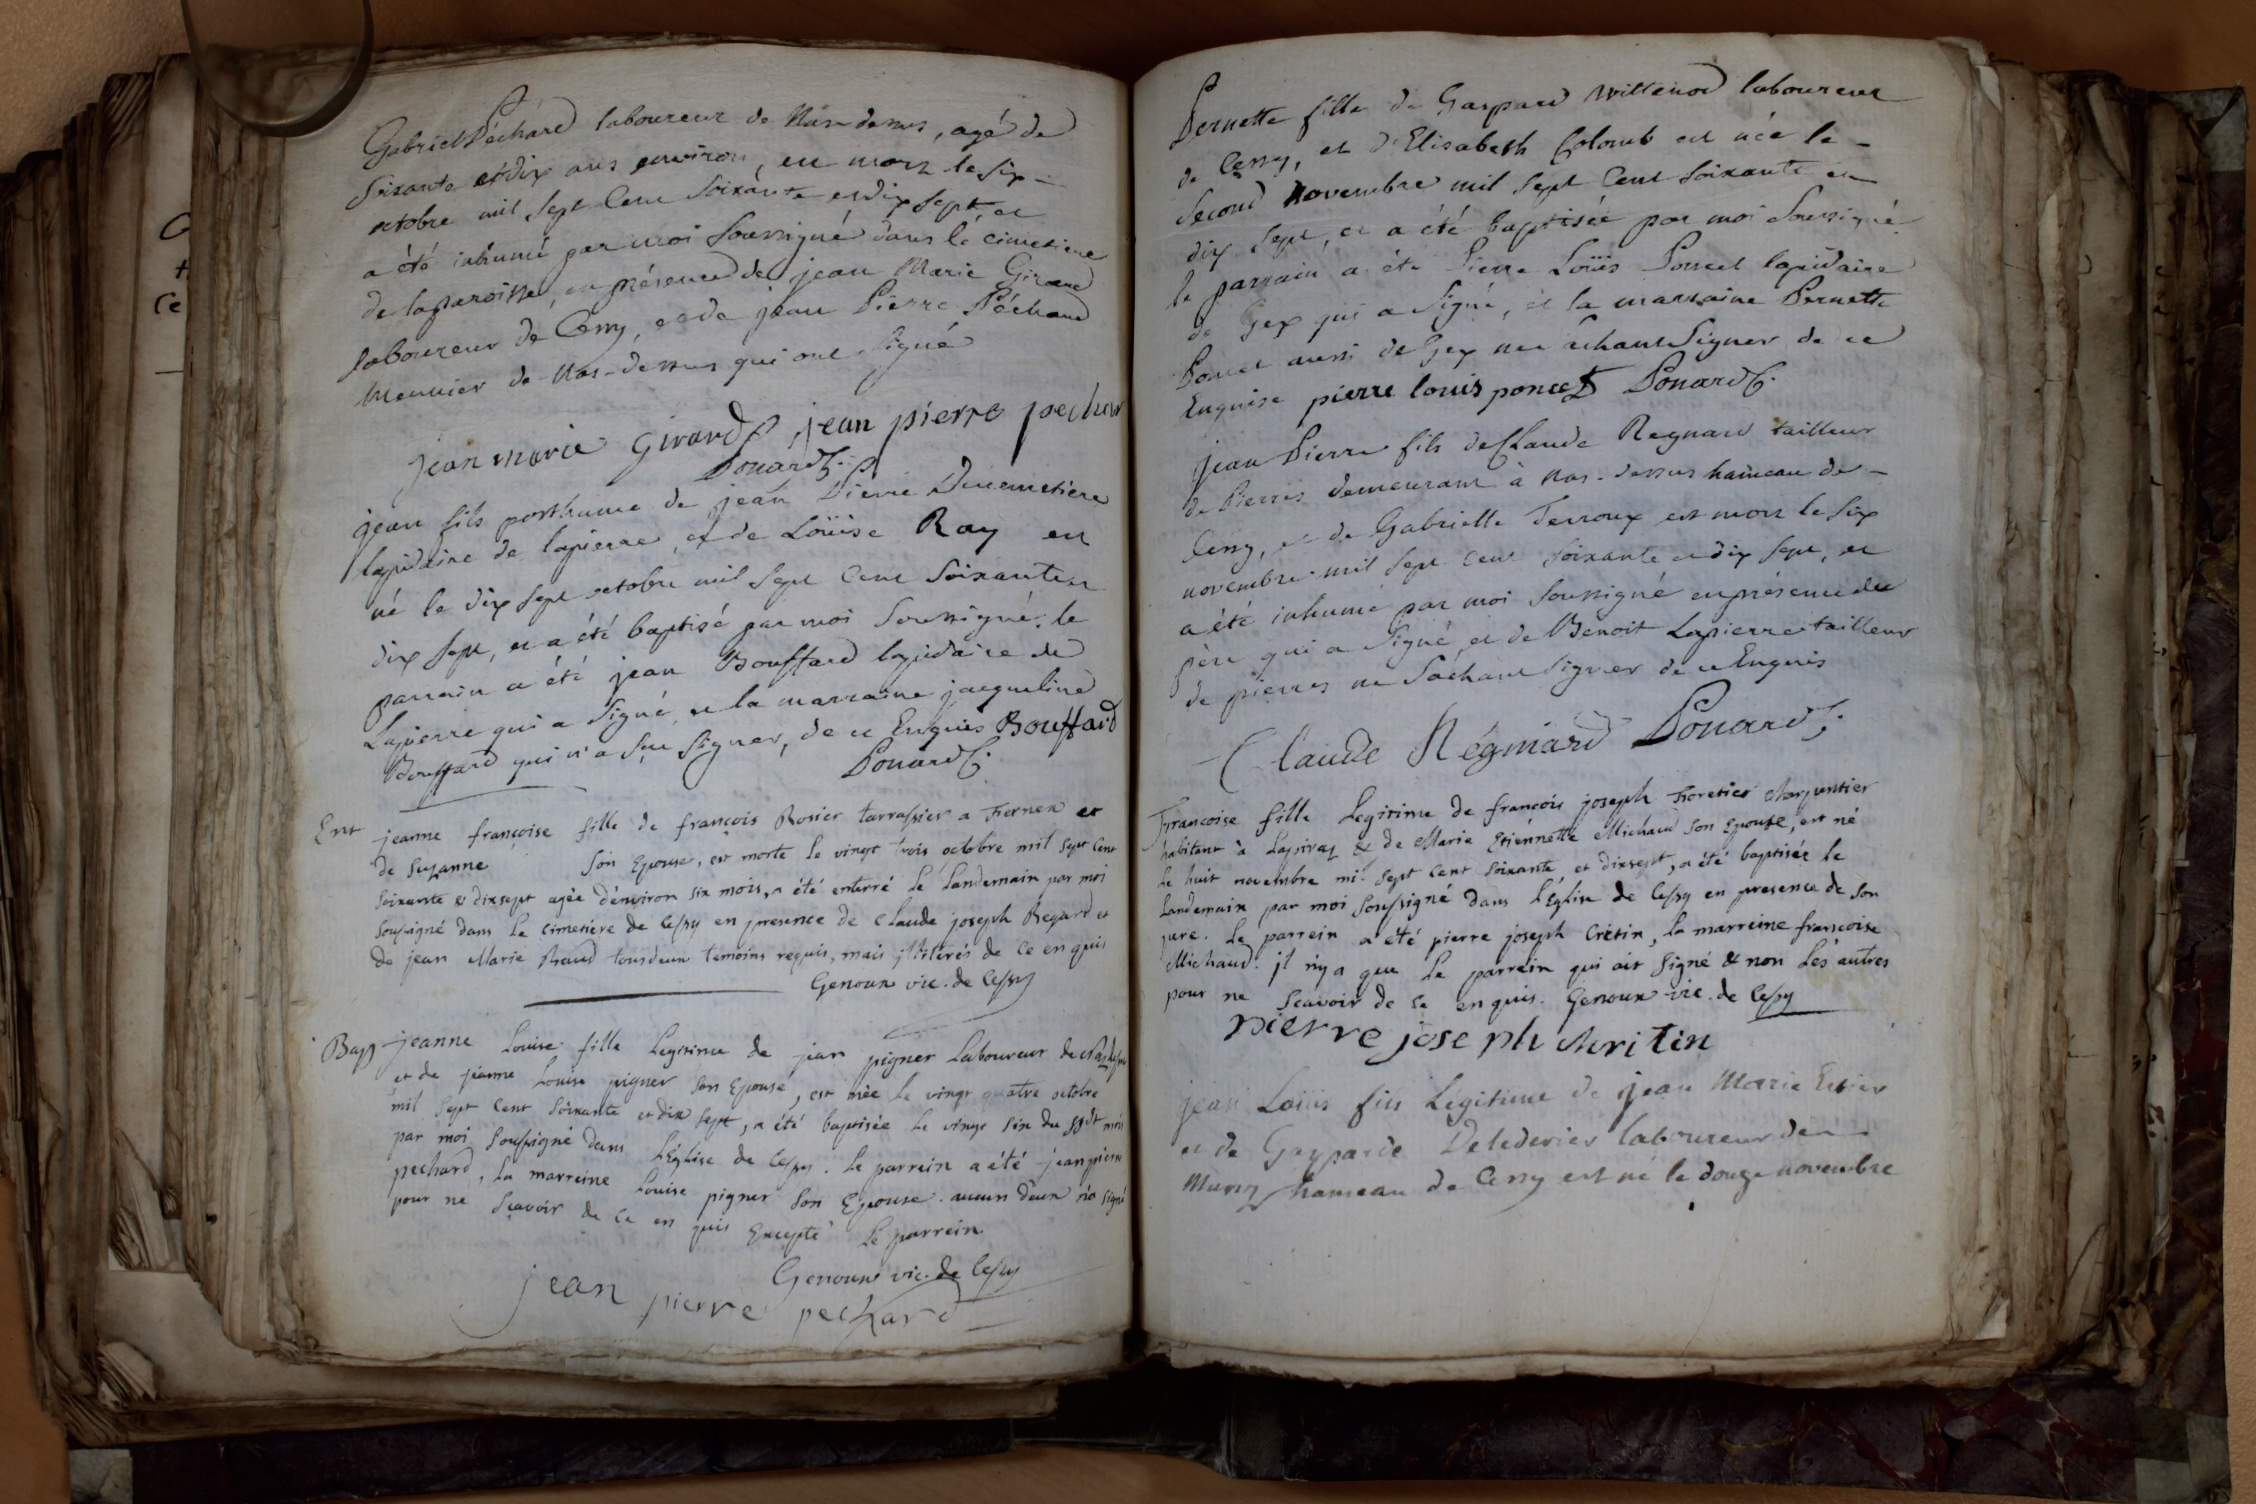 Gabriel Péchard laboureur de Nas-dessus, agé de
soixante et dix ans environ, est mort le six
octobre mil sept cent soixante et dix sept, et
a été inhumé par moi soussigné dans le cimetiere
de la paroisse, en présence de jean Marie Girard
laboureur de Cessy, et de jean Pierre Péchard
Meunier de Nas-dessus qui ont signé
jean marie Girard jean pierre pechar
Ponard C.
jean fils posthume de jean Pierre Ducimetiere
lapidaire de lapierre, et de Loüise Ray est
né le dix sept octobre mil sept cent soixante et
dix sept, et a été baptisé par moi soussigné. le
parrain a été jean Bouffard lapidaire de
Lapierre qui a signé, et la marraine jacqueline
Bouffard qui n'a sçu signer, de ce Enquis Bouffard
Ponard C.
Ent jeanne françoise fille de françois Rosier tarrassier a Fernex et
de suzanne son Epouse, est morte le vingt trois octobre mil sept cent
soixante & dixsept agée d'environ six mois, a été enterré le landemain par moi
soussigné dans le cimetiére de Cessy en presence de Claude joseph Regard et
de jean Marie Ruaud tous deux temoins requis, mais illiterés de ce en quis
Genoux vic. de Cessy
Bap jeanne Louise fille Legitime de jean pigner Laboureur de Nas dessus
et de jeanne Louise pigner son Epouse, est née le vingt quatre octobre
mil sept cent soixante et dix sept, a été baptisée le vingt six du susdt mois
par moi soussigné dans l'Eglise de Cessy. le parrein a été jean pierre
pechard, la marreine Louise pigner son Epouse. aucun d'eux n'a signé
pour ne sçavoir de ce en quis Excepté le parrein
Genoux vic. de Cessy
jean pierre pechard
Pernette fille de Gaspard Willenod laboureur
de Cessy, et d'Elisabeth Colomb est née le
second novembre mil sept cent soixante et
dix sept, et a été baptisée par moi soussigné
le parrain a été Pierre Loüis Poncet lapidaire
de Gex qui a signé, et la marraine Pernette
Poncet aussi de Gex ne sachant signer de ce
Enquise pierre louis poncet Ponard C.
jean Pierre fils de Claude Regnard tailleur
de Pierres demeurant à Nas-dessus hameau de
Cessy, et de Gabrielle Terroux est mort le six
novembre mil sept cent soixante et dix sept, et
a été inhumé par moi soussigné en présence du
pere qui a signé, et de Benoit Lapierre tailleur
de pierres ne sachant signer de ce Enquis
Claude Régniard Ponard C.
Françoise fille Legitime de françois joseph Foretier charpentier
habitant à Lapiraz & de Marie Etiennette Michaud son Epouse, est né
le huit novembre mil sept cent soixante, et dixsept, a été baptisée le
landemain par moi soussigné dans l'Eglise de Cessy en presence de son
pere. le parrein a été pierre joseph Crétin, la marreine françoise
Michaud. il n'y a que le parrein qui ait signé & non les autres
pour ne sçavoir de ce en quis. Genoux vic. de Cessy
pierre joseph chritin
jean Loüis fils legitime de jean Marie
et de Gasparde Delederier laboureur de
Mury hameau de Cessy est né le douze novembre